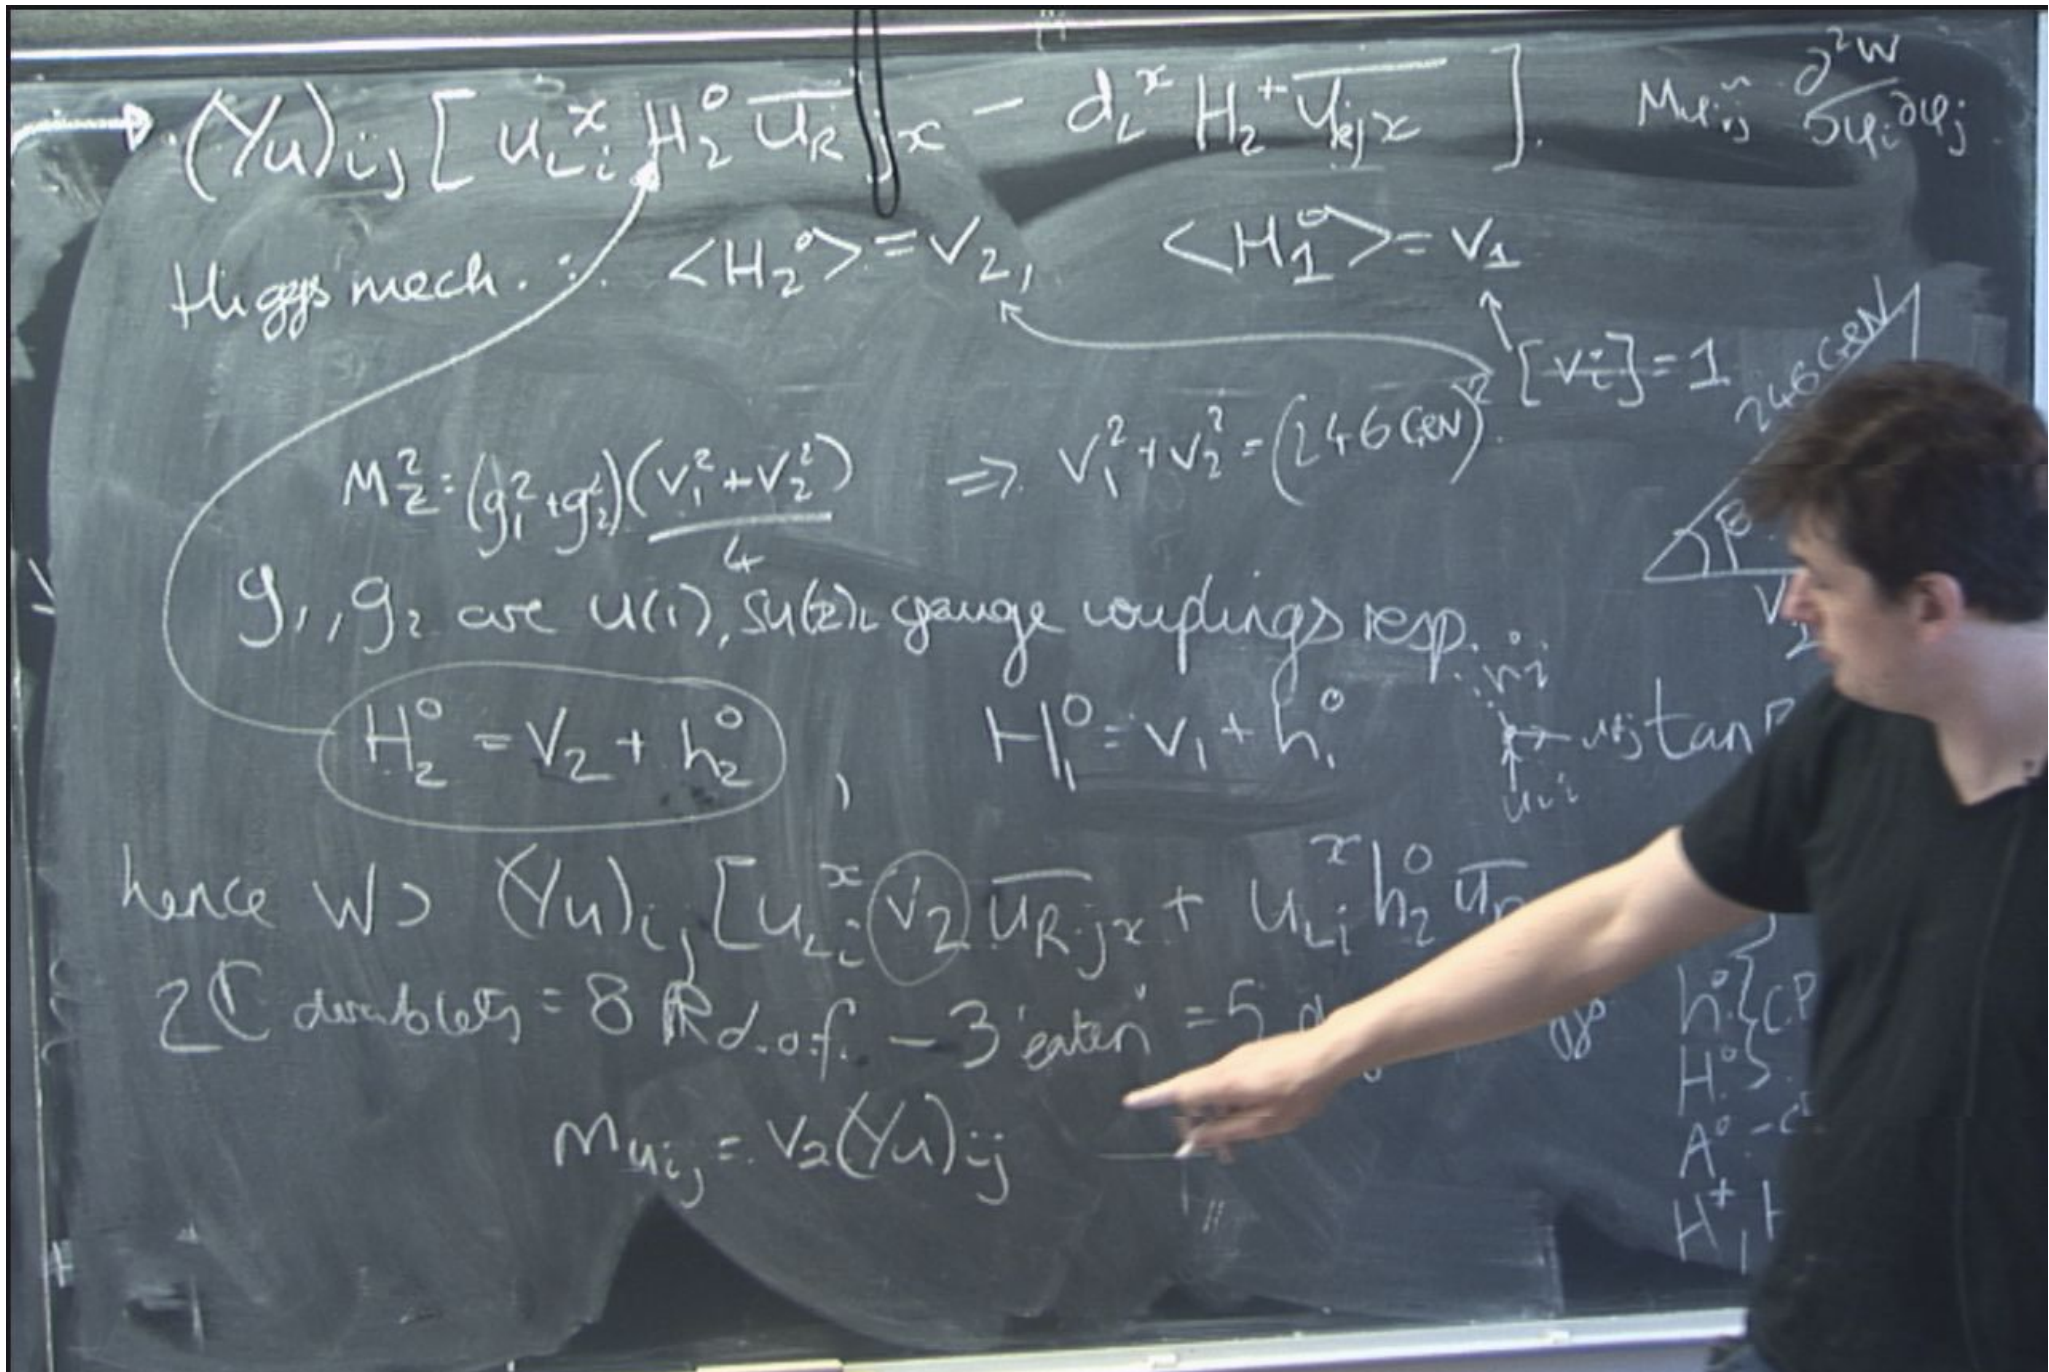 (Yu)ij [ uLi^x H2^0 \overline{uR}jx − dL^x H2^+ \overline{uRjx} ].
∂²W
∂φi ∂φj
Higgs mech. : <H2^0> = v2, <H1^0> = v1
[vi] = 1
246 GeV
MZ² = (g1² + g2²)(v1² + v2²)/4 ⇒ v1² + v2² = (246 GeV)².
β
g1, g2 are U(1), SU(2)L gauge couplings resp.
H2^0 = v2 + h2^0 , H1^0 = v1 + h1^0
tan
hence W ⊃ (Yu)ij [uLi^x v2 \overline{uR}jx + uLi^x h2^0
2 ℂ doublets = 8 ℝ d.o.f. − 3 'eaten' = 5
h^0 } CP
H^0
A^0 -
H^+,
muij = v2(Yu)ij